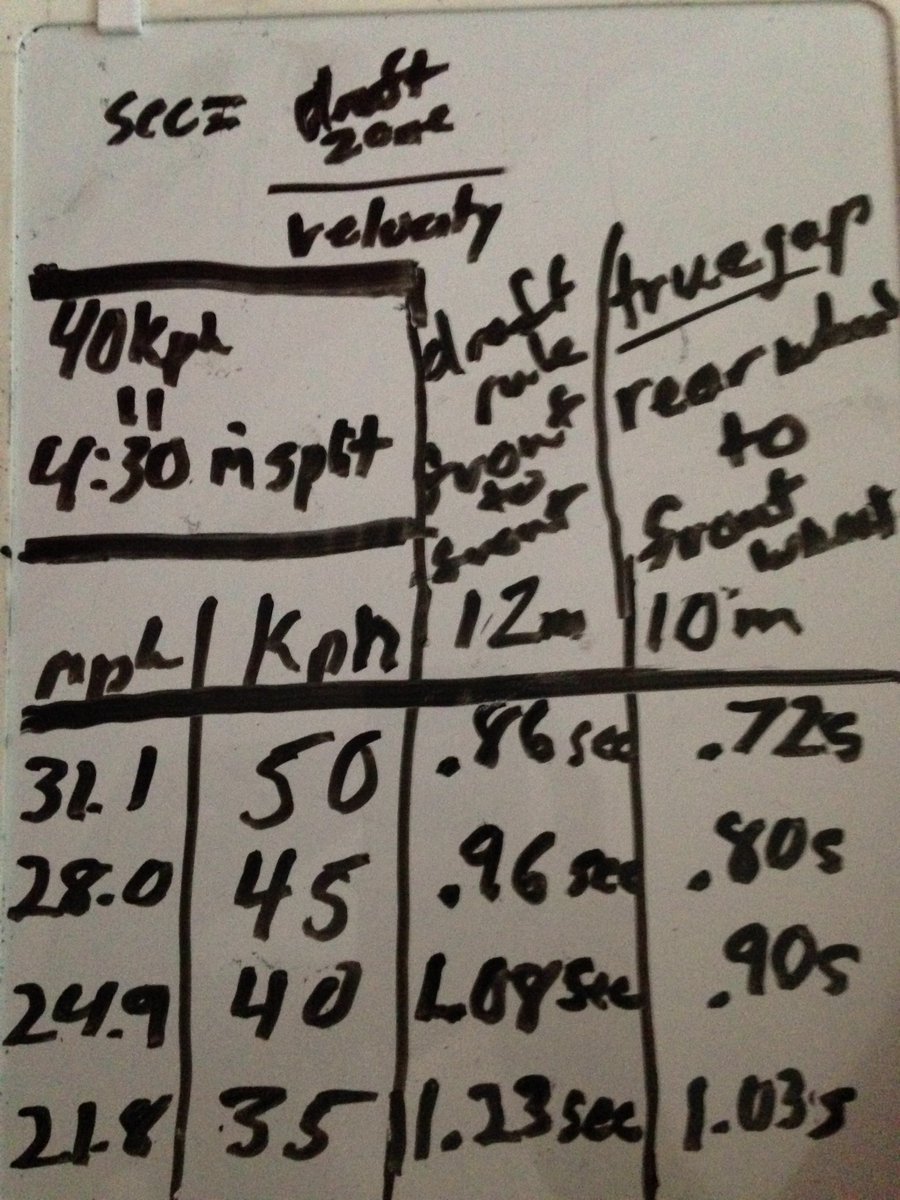 sec= draft
zone
velocity
40kph
=
4:30 imsplit
draft
rule
front
to
front
12m
truegap
rear wheel
to
front
wheel
10m
mph Kph
31.1 50 .86 sec .72s
28.0 45 .96 sec .80s
24.9 40 1.08 sec .90s
21.8 35 1.23 sec 1.03s